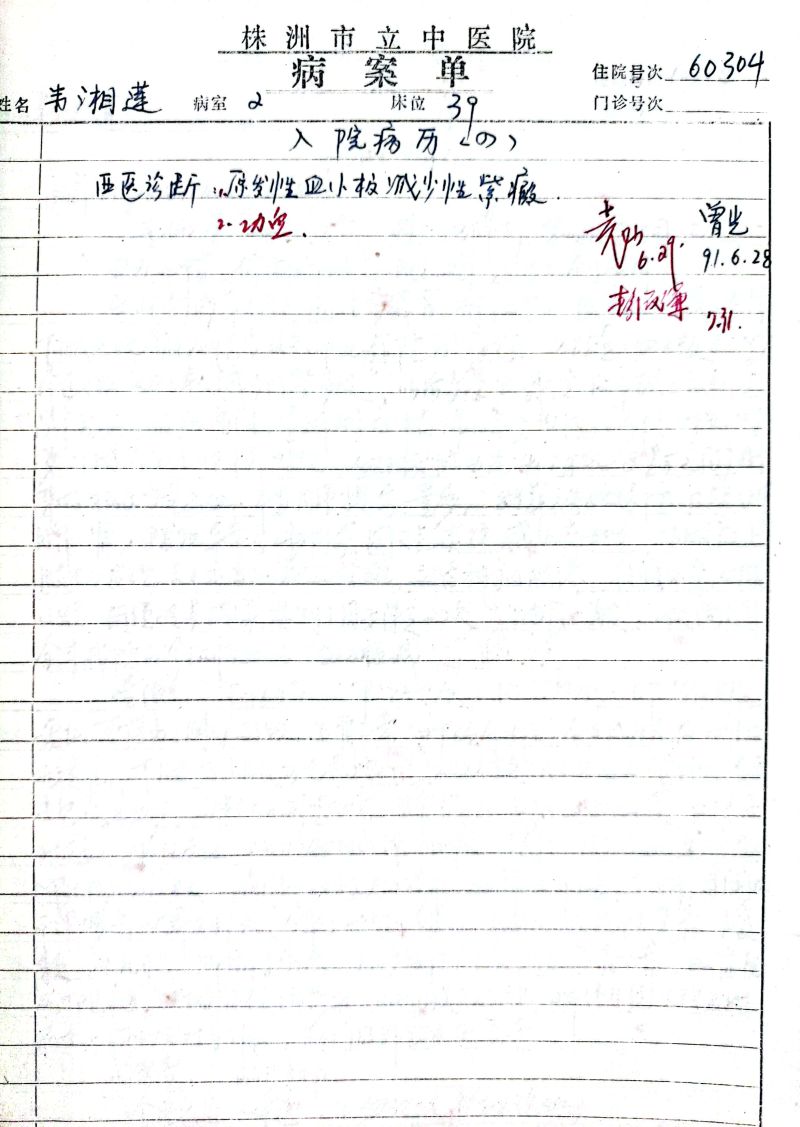 株洲市立中医院
病案单
住院号次 60304
姓名 韦湘莲 病室 2 床位 39 门诊号次
入院病历(四)
西医诊断:1.原发性血小板减少性紫癜.
2.功血.
曾光
6.29. 91.6.28
7.31.